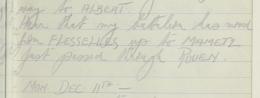 way to ALBERT.
Hear that my battalion has moved
from FLESSELLES up to MAMETZ
Just passed through ROUEN.
MON. DEC. 11TH —